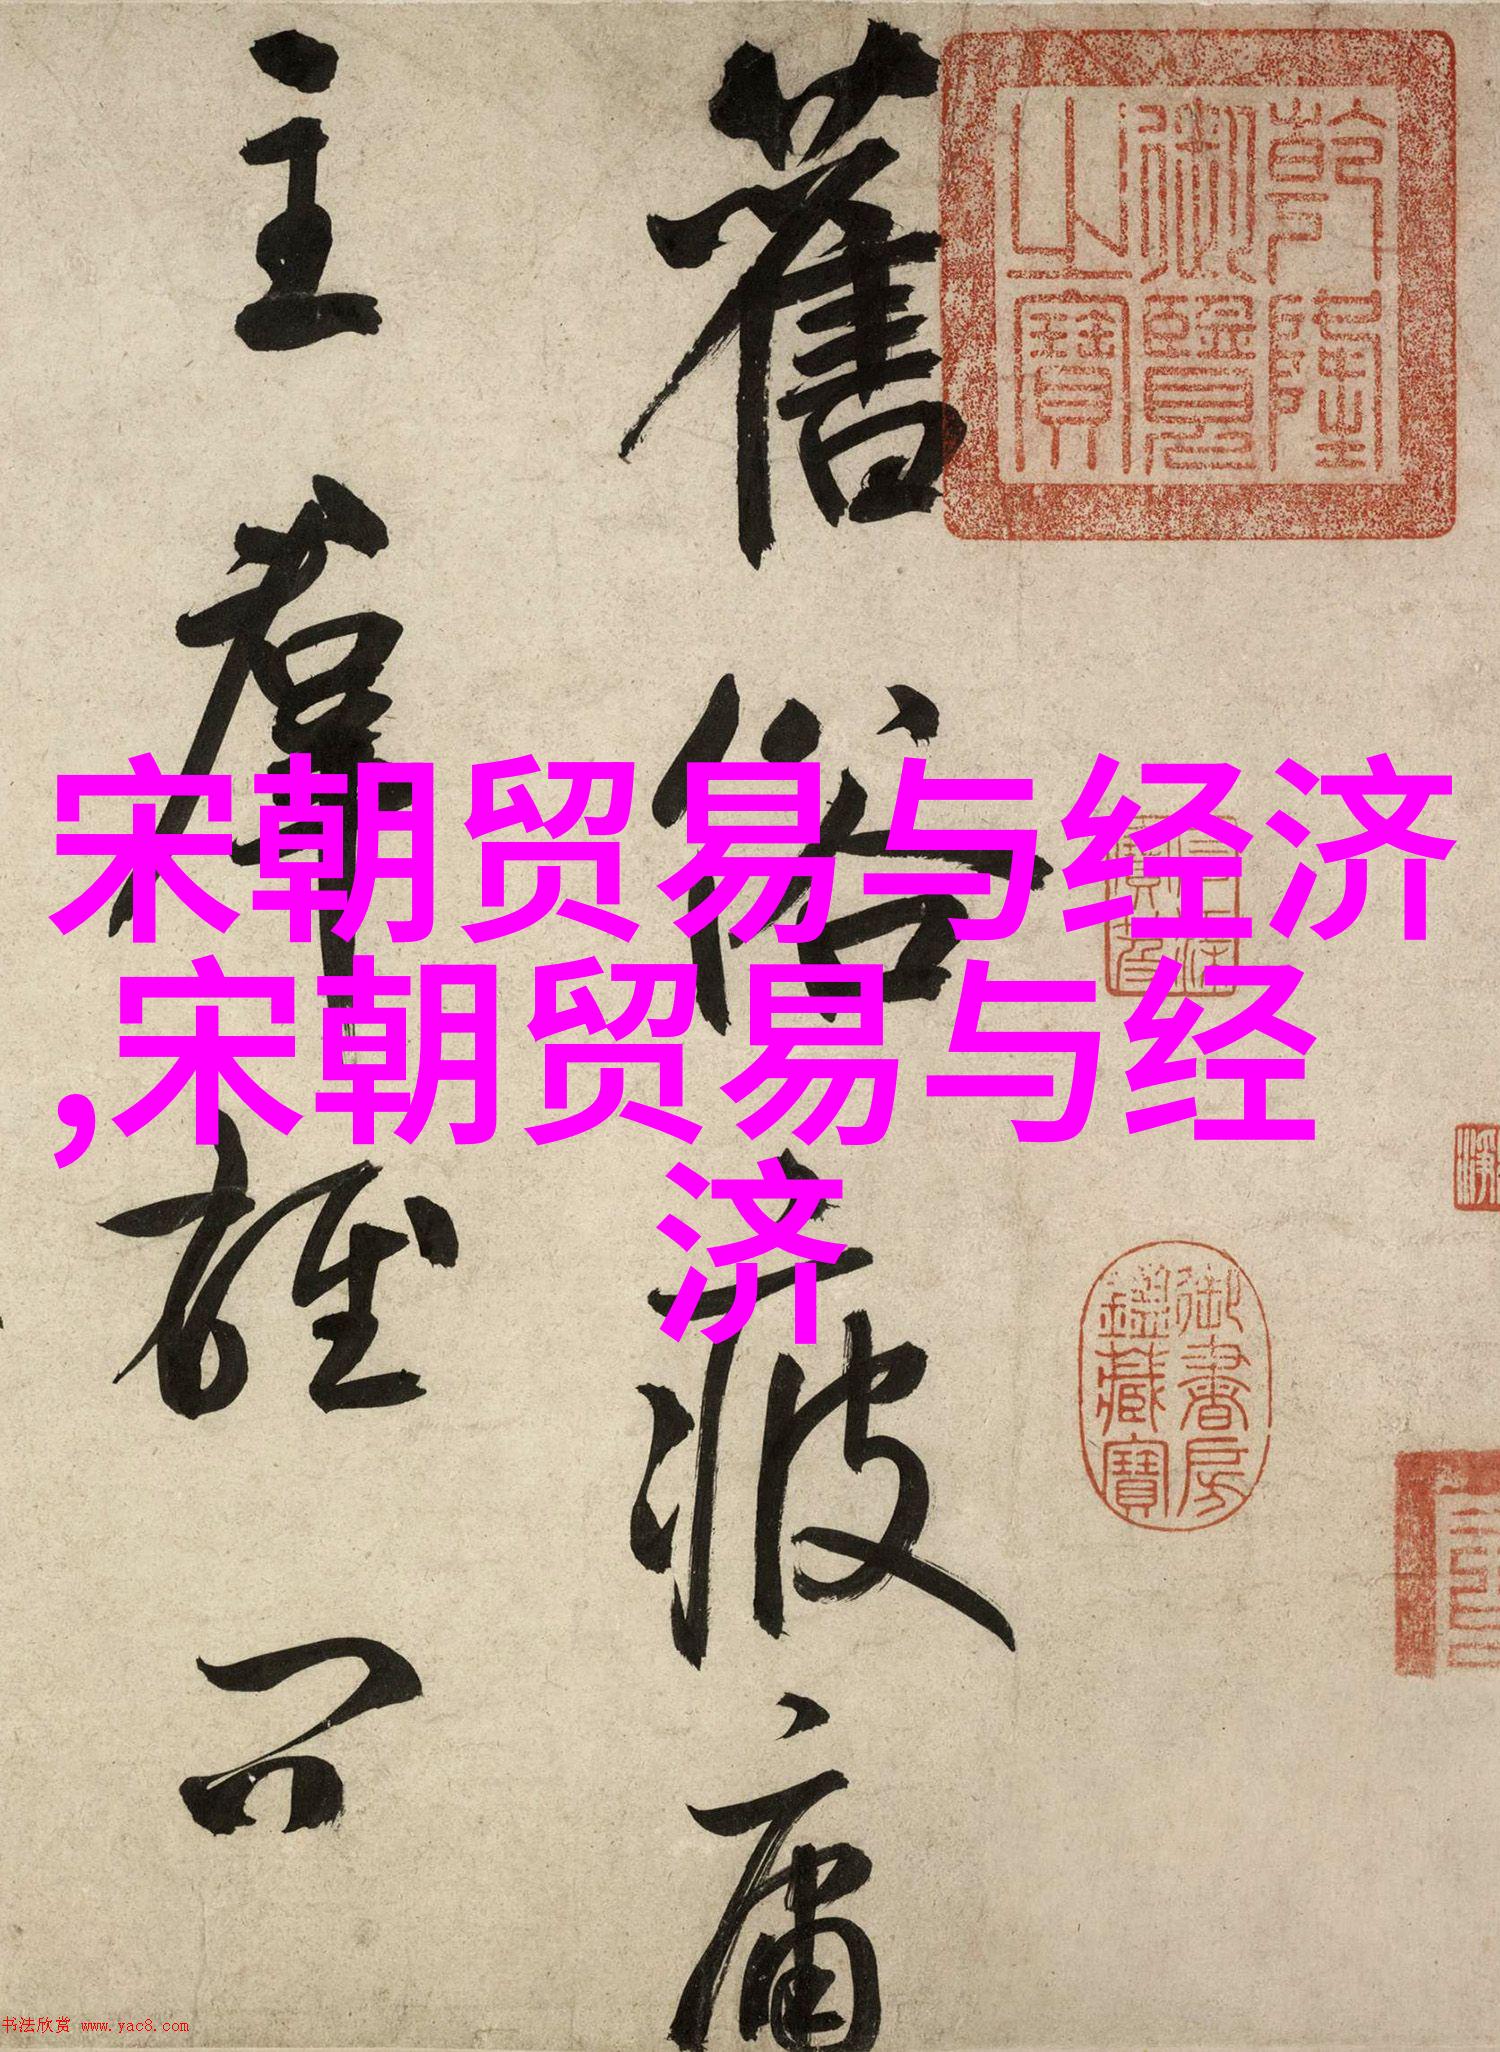 舊俗疲庸
主羣雄只
乾隆御覽之寶
御書房鑑藏寶
宋朝贸易与经济
,宋朝贸易与经
济
书法欣赏 www.yac8.com